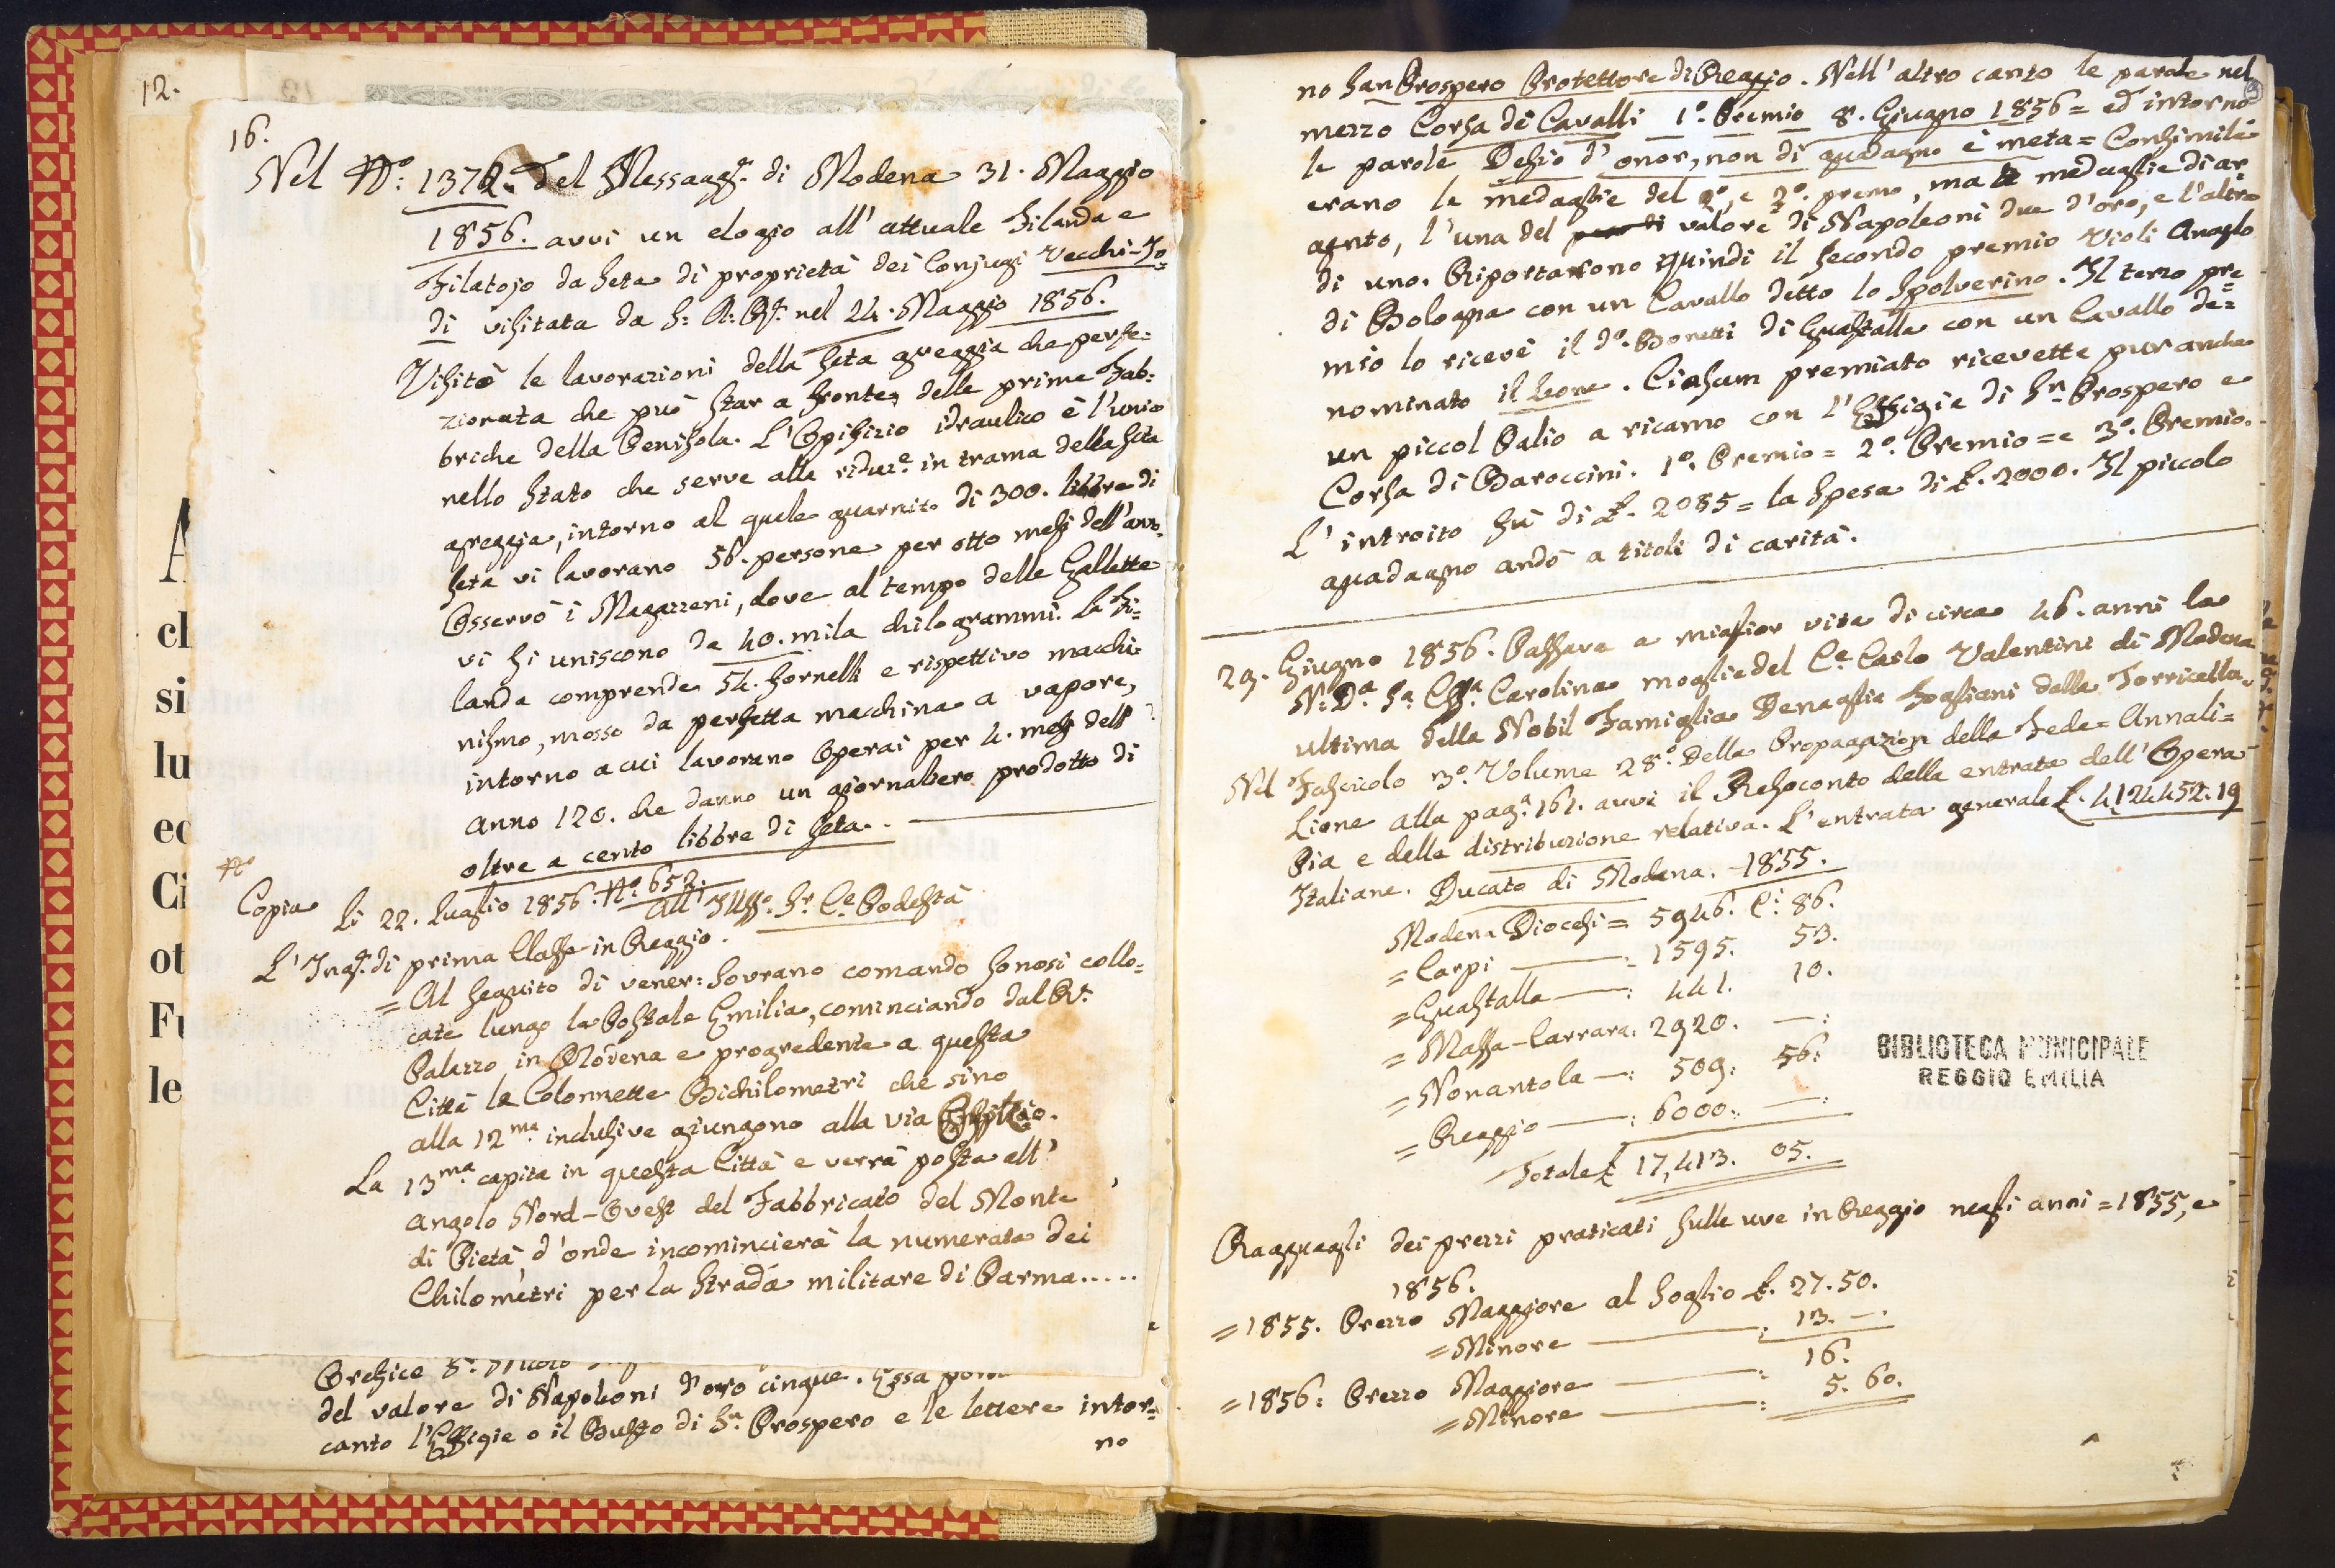 12.
16.
Nel N.º 1376. del Messagg.r di Modena 31. Maggio
1856. avvi un elogio all'attuale Filanda e
Filatojo da seta di proprietà dei Conjugi Vecchi-Jo-
di visitata da S: A: R: nel 24. Maggio 1856.
Visitò le lavorazioni della seta greggia che perfe-
zionata che può star a fronte delle prime Fab-
briche della Penisola. L'Opifizio idraulico è l'unico
nello Stato che serve alla riduz.e in trama della seta
greggia, intorno al quale guarnito di 300. libbre di
seta vi lavorano 56. persone per otto mesi dell'anno.
Osservò i Magazzeni, dove al tempo delle Gallette
vi si uniscono da 40. mila chilogrammi. La Fi-
landa comprende 54. fornelli e rispettivo macchi-
nismo, mosso da perfetta macchina a vapore,
intorno a cui lavorano Operai per 4. mesi dell'
anno 120. che danno un giornaliero prodotto di
oltre a cento libbre di seta.
Nº
Copia Li 22. Luglio 1856. Nº. 652.
All' Illss.º S.r C.e Podestà
L'Ing.r di prima Classe in Reggio.
= Al seguito di vener: Sovrano comando sonosi collo-
cate lungo la Postale Emilia, cominciando dal R.
Palazzo in Modena e progredente a questa
Città le Colonnette Bichilometri che sino
alla 12ma. inclusive giungono alla via
La 13ma. capita in questa Città e verrà posta all'
angolo Nord-Ovest del Fabbricato del Monte
di Pietà, d'onde incomincierà la numerata dei
Chilometri per la strada militare di Parma.....
Orefice S.r
del valore di Napoleoni d'oro cinque. Essa
canto l'Effigie o il Busto di S.n Prospero e le lettere intor-
no
A
cl
si
lu
ec
Ci
ot
Fu
le
no San Prospero Protettore di Reggio. Nell'altro canto le parole nel
mezzo Corsa di Cavalli 1º. Premio 8. Giugno 1856 = ed intorno
le parole Desio d'onor, non di guadagno è meta = Consimile
erano le medaglie del 2º, e 3º. premio, ma le medaglie di ar-
gento, l'una del peso di valore di Napoleoni due d'oro, e l'altra
di uno. Riportarono quindi il secondo premio Violi Angelo
di Bologna con un Cavallo detto lo Spolverino. Il terzo pre-
mio lo ricevè il d.º Bonetti di Guastalla con un Cavallo de-
nominato il Leone. Ciascun premiato ricevette pur anche
un piccol Palio a ricamo con l'Effigie di S.n Prospero e
Corsa di Baroccini. 1º. Premio = 2º. Premio = e 3º. Premio.
L'introito fù di £. 2085 = la spesa di £. 2000. Il piccolo
guadagno andò a titoli di carità.
29. Giugno 1856. Passava a miglior vita di circa 46. anni la
N: D.a S.a C.ssa Carolina moglie del C.e Carlo Valentini di Modena
ultima della Nobil Famiglia Denaglia Fogliani della Torricella.
Nel Fascicolo 3º. Volume 28º. Della Propagazion della Fede = Annali =
Lione alla pag.a 161. avvi il Resoconto della entrata dell'Opera
Pia e della distribuzione relativa. L'entrata generale £. 4124452.19
Italiane. Ducato di Modena. 1855.
Modena Diocesi = 5946. C.i 86.
= Carpi : 1595. 53.
= Guastalla : 441. 10.
= Massa-Carrara: 2920. —:
= Nonantola —: 509. 56:
= Reggio —: 6000: —:
Totale £ 17,413. 05.
BIBLIOTECA MUNICIPALE
REGGIO EMILIA
Ragguagli dei prezzi praticati sulle uve in Reggio negli anni = 1855, e
1856.
= 1855. Prezzo Maggiore al soglio £. 27. 50.
= Minore : 13. —.
= 1856: Prezzo Maggiore : 16.
= Minore : 5. 60.